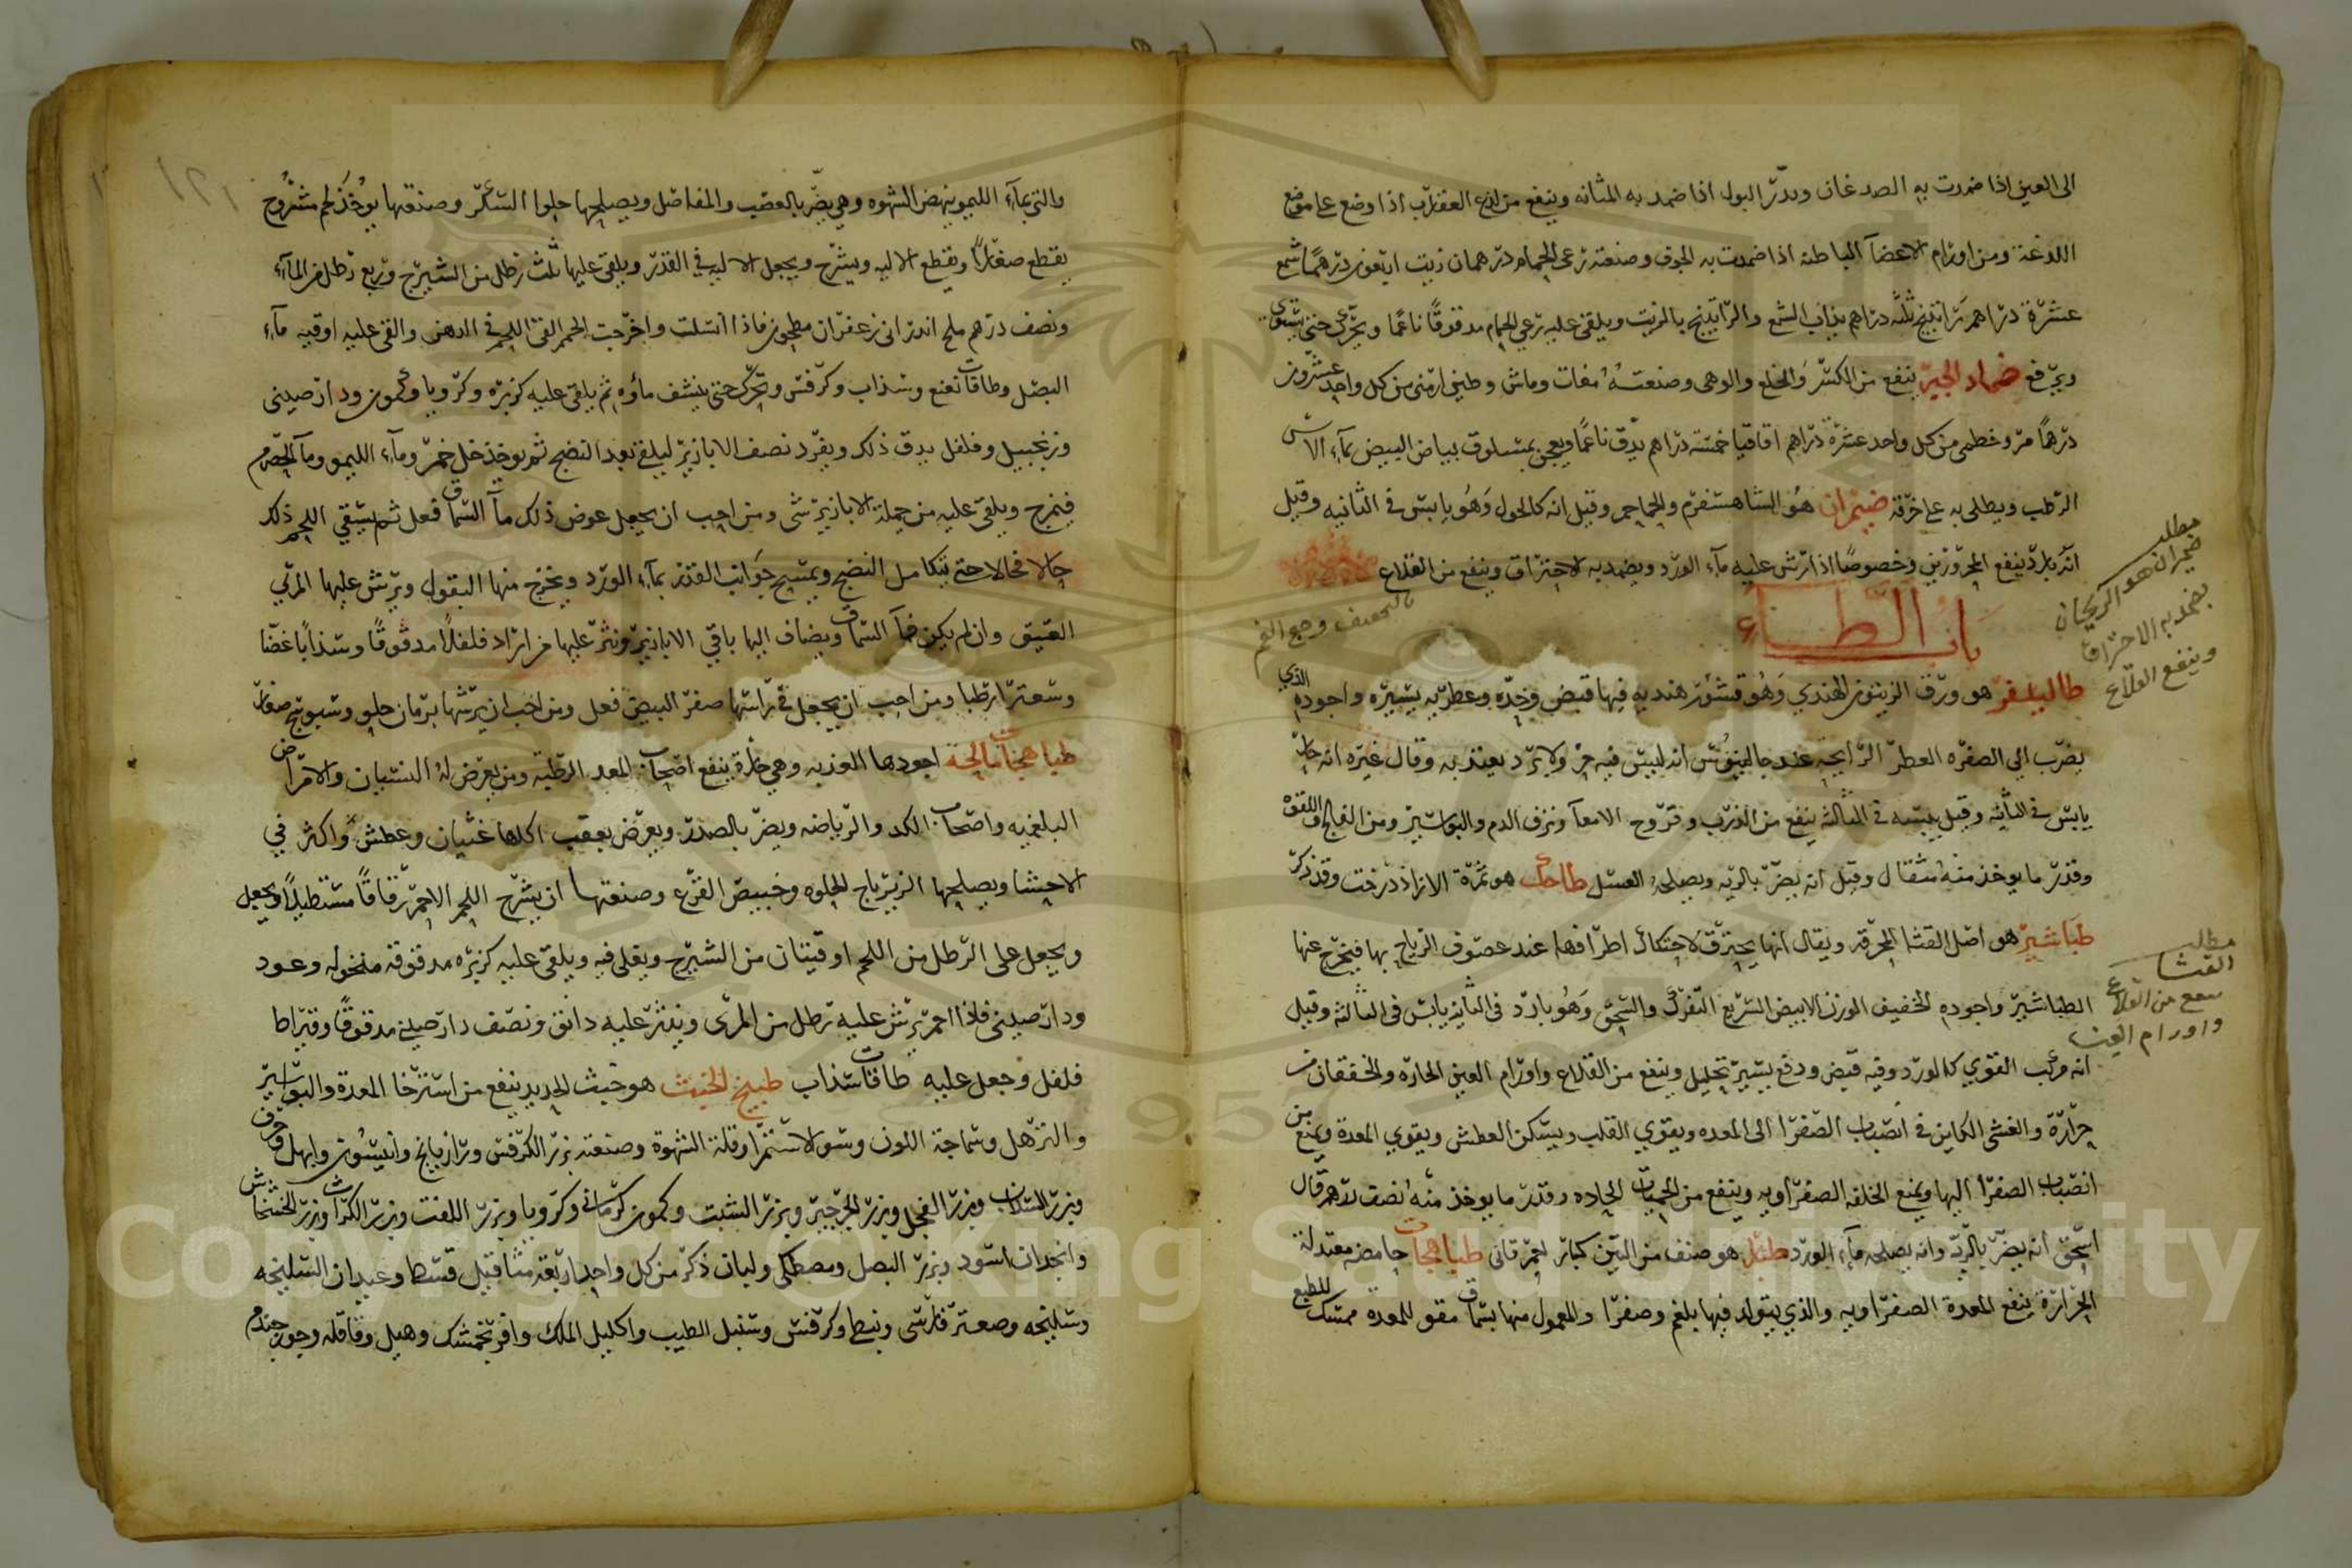 الى العين اذا ضمدت به الصدغان ويدر البول اذا ضمد به المثانه وينفع من لدغ العقرب اذا وضع على موضع
اللدغة ومن اورام الاعضآ الباطنه اذا ضمدت به الجوف وصنعته رعى الحمام درهمان زيت اربعون درهمًا شمع
عشرة دراهم راتينج ثلثه دراهم يذاب الشمع والراتينج بالزيت ويلقى عليه رعي الحمام مدقوقًا ناعمًا ويحرك حتى يستوي
ويرفع ضماد الجبر ينفع من الكسر والخلع والوهى وصنعته مغاث وماش وطين ارمنى من كل واحد عشرون
درهمًا مر وخطمى من كل واحد عشرة دراهم اقاقيا خمسة دراهم يدق ناعمًا ويعجن ببياض البيض بمآء الاس
الرطب ويطلى به على خرقة ضيمران هو الشاهسفرم والحماحم وقيل انه كالحول وهو يابس فى الثانيه وقيل
انه بارد ينفع المحرورين وخصوصًا اذا رش عليه مآء الورد ويضمد به لاحتراق وينفع من القلاع
باب الطاء
طاليسفر هو ورق الزيتون الهندي وهو قشور هنديه فيها قبض وحده وعطريه يسيره واجوده الذي
يضرب الى الصفره العطر الرايحة عند جالينوس انه ليس فيه حر ولا برد يعتد به وقال غيره انه حار
يابس فى الثانيه وقيل يبسه فى الثالثه ينفع من الذرب وقروح الامعآ ونزف الدم والبواسير ومن الفالج واللقوه
وقدر ما يوخذ منه مثقال وقيل انه يضر بالريه ويصلحه العسل طاحك هو ثمرة الازادرخت وقد ذكر
طباشير هو اصل القنا المحرقة ويقال انها يحترق لاحتكاك اطرافها عند عصوف الرياح بها فيخرج عنها
الطباشير واجوده الخفيف الوزن الابيض السريع التفرك والسحق وهو بارد فى الثانيه يابس فى الثالثه وقيل
انه مركب القوي كالورد وفيه قبض ودفع يسير تحليل وينفع من القلاع واورام العين الحاره والخفقان من
حرارة والغشى الكاين فى انصباب الصفرا الى المعده ويقوي القلب ويسكن العطش ويقوي المعدة ويمنع من
انصباب الصفرا اليها ويمنع الخلفه الصفراويه وينفع من الحميات الحاده وقدر ما يوخذ منه نصف درهم قال
اسحق انه يضر بالريه وانه يصلحه مآء الورد طبار هو صنف من التين كبار احمر قانى طباهجات حامضه معتدلة
الحرارة ينفع المعدة الصفراويه والذي يتولد فيها بلغم وصفرا والمعمول منها بسماق مقو للمعده ممسك للطبع
مطلب
ضيمران هو الريحان
يضمد به الاحتراق
وينفع القلاع
وجع الفم
مطلب
القثا
ينفع من القلاع
واورام العين
والتى بمآء الليمو ينهض الشهوه وهى يضر بالعصب والمفاصل ويصلحها حلوا السكر وصنعتها يؤخذ لحم مشروح
يقطع صغارًا ويقطع الاليه ويشرح ويجعل الاليه فى القدر ويلقى عليها ثلث رطل من الشيرج وربع رطل من المآء
ونصف درهم ملح اندرانى زعفران مطحون فاذا انسلت واخرجت الحمر القى اللحم فى الدهن والقى عليه اوقيه مآء
البصل وطاقات نعنع وسذاب وكرفس وتحرك حتى ينشف ماؤه ثم يلقى عليه كزبره وكرويا وكمون ودار صينى
وزنجبيل وفلفل يدق ذلك ويفرد نصف الابازير ليلقى بعد النضج ثم يوخذ خل خمر ومآء الليمو ومآ الحصرم
فيمزج ويلقى عليه من جملة الابازير شى ومن احب ان يجعل عوض ذلك مآ السماق فعل ثم يسقي اللحم ذلك
حالا فحالا حتى يتكامل النضج ويمسح جوانب القدر بمآء الورد ويخرج منها البقول ويرش عليها المري
العتيق وان لم يكن فمآ السماق ويضاف اليها باقي الابازير ونثر عليها من اراد فلفلًا مدقوقًا وسذابًا غضًا
وسعترا رطبا ومن احب ان يجعل فى راسها صفر البيض فعل ومن احب ان يرشها برمان حلو وسنبوسج صغار
طباهجات مالحة اجودها العذبه وهي حارة ينفع اصحاب المعد الرطبه ومن يعرض له النسيان والامراض
البلغميه واصحاب الكد والرياضه ويضر بالصدر ويعرض بعقب اكلها غثيان وعطش واكثر في
الاحشا ويصلحها الزيرباج الحلوه وخبيص القرع وصنعتها ان يشرح اللحم الاحمر رقاقًا مستطيلًا ويجعل
ويجعل على الرطل من اللحم اوقيتان من الشيرج ويقلى فيه ويلقى عليه كزبره مدقوقه منخوله وعود
ودار صينى فاذا احمر يرش عليه رطل من المرى وينثر عليه دانق ونصف دار صينى مدقوقًا وقيراطا
فلفل وجعل عليه طاقات سذاب طبيخ الخبث هو خبث الحديد ينفع من استرخا المعدة والبواسير
والترهل وسماجة اللون وسو الاستمرا وقلة الشهوة وصنعته بزر الكرفس ورازيانج وانيسون وابهل وحرف
وبزر السذاب وبزر الفجل وبزر الجرجير وبزر الشبت وكمون كرمانى وكرويا وبزر اللفت وبزر الكراث وبزر الخشخاش
وانجدان اسود وبزر البصل ومصطكى ولبان ذكر من كل واحد اربعة مثاقيل قسط وعيدان السليخه
وسليخه وصعتر فارسى وكرفس وسنبل الطيب واكليل الملك وافرنجمشك وهيل وقاقله وجوز جندم